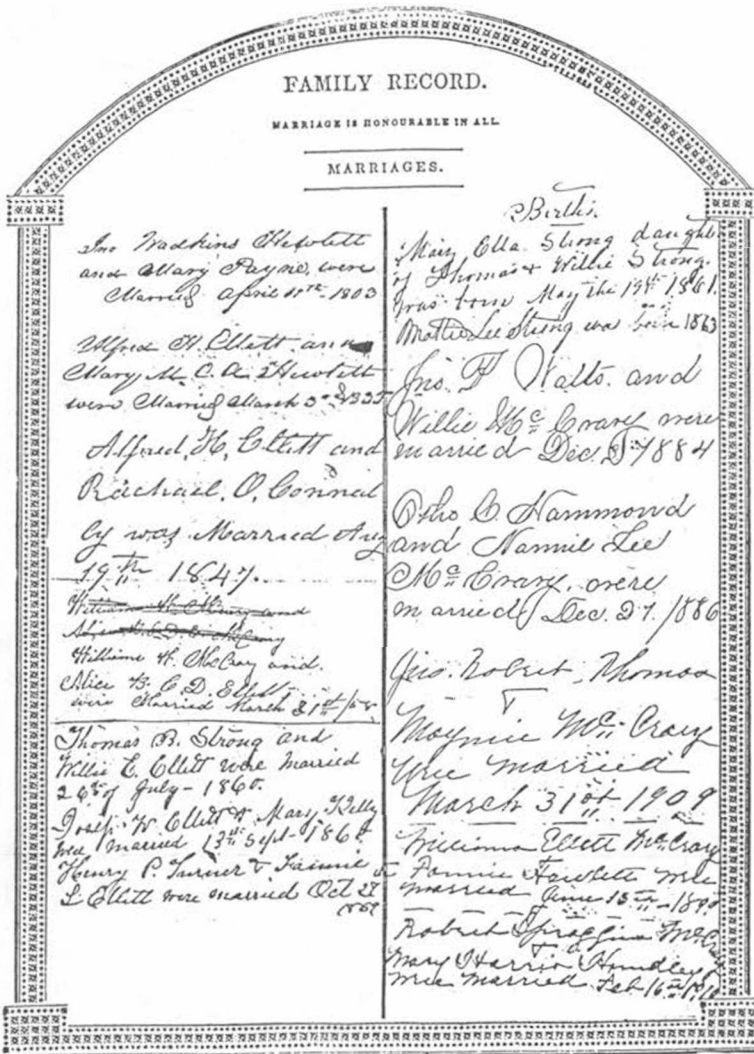 FAMILY RECORD.
MARRIAGE IS HONOURABLE IN ALL.
MARRIAGES.
Jno Wadkins Hewlett
and Mary Payne, were
Married April 1803
Alfred H. Ellett and
Mary M. C. A. Hewlett
were Married March 3rd
Alfred, H, Ellett and
Rachael, O, Connal
ly was Married Aug
19th 1847.
William H. McCrary and
William H. McCrary and
Alice B. C. D. Ellett
were Married March 31st
Thomas B. Strong and
Willie E. Ellett were married
26th of July - 1860.
Joseph W. Ellett & Mary Kelly
were married 13th Sept - 1860
Henry P. Turner & Fannie
L Ellett were married Oct 27
1869
Births.
Mary Ella Strong daughter
of Thomas & Willie Strong.
was born May the 19th 1861.
Mattie Lee Strong was born 1863
Jno. F Watts. and
Willie McCrary were
married Dec. 1884
Otho C. Hammond
and Nannie Lee
McCrary, were
married Dec. 27. 1886
Jno. Robert, Thomas
Maynie McCrary
were married
March 31st 1909
William Ellett McCrary
Fannie Hewlett were
married June 15th
Robert Spraggins
Mary Harris Hundley
were married Feb 16th